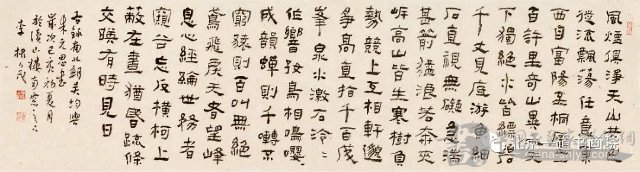 風煙俱淨天山共色
從流飄蕩任意東
西自富陽至桐廬一
百許里奇山異水天
下獨絕水皆縹碧
千丈見底游魚細
石直視無礙急湍
甚箭猛浪若奔夾
岸高山皆生寒樹負
勢競上互相軒邈
爭高直指千百成
峯泉水激石泠泠
作響好鳥相鳴嚶嚶
成韻蟬則千囀不
窮猿則百叫無絕
鳶飛戾天者望峰
息心經綸世務者
窺谷忘反橫柯上
蔽在晝猶昏疏條
交映有時見日
南北朝吳均與
朱元思書
歲次己亥初夏月
山樓南窗之下
李